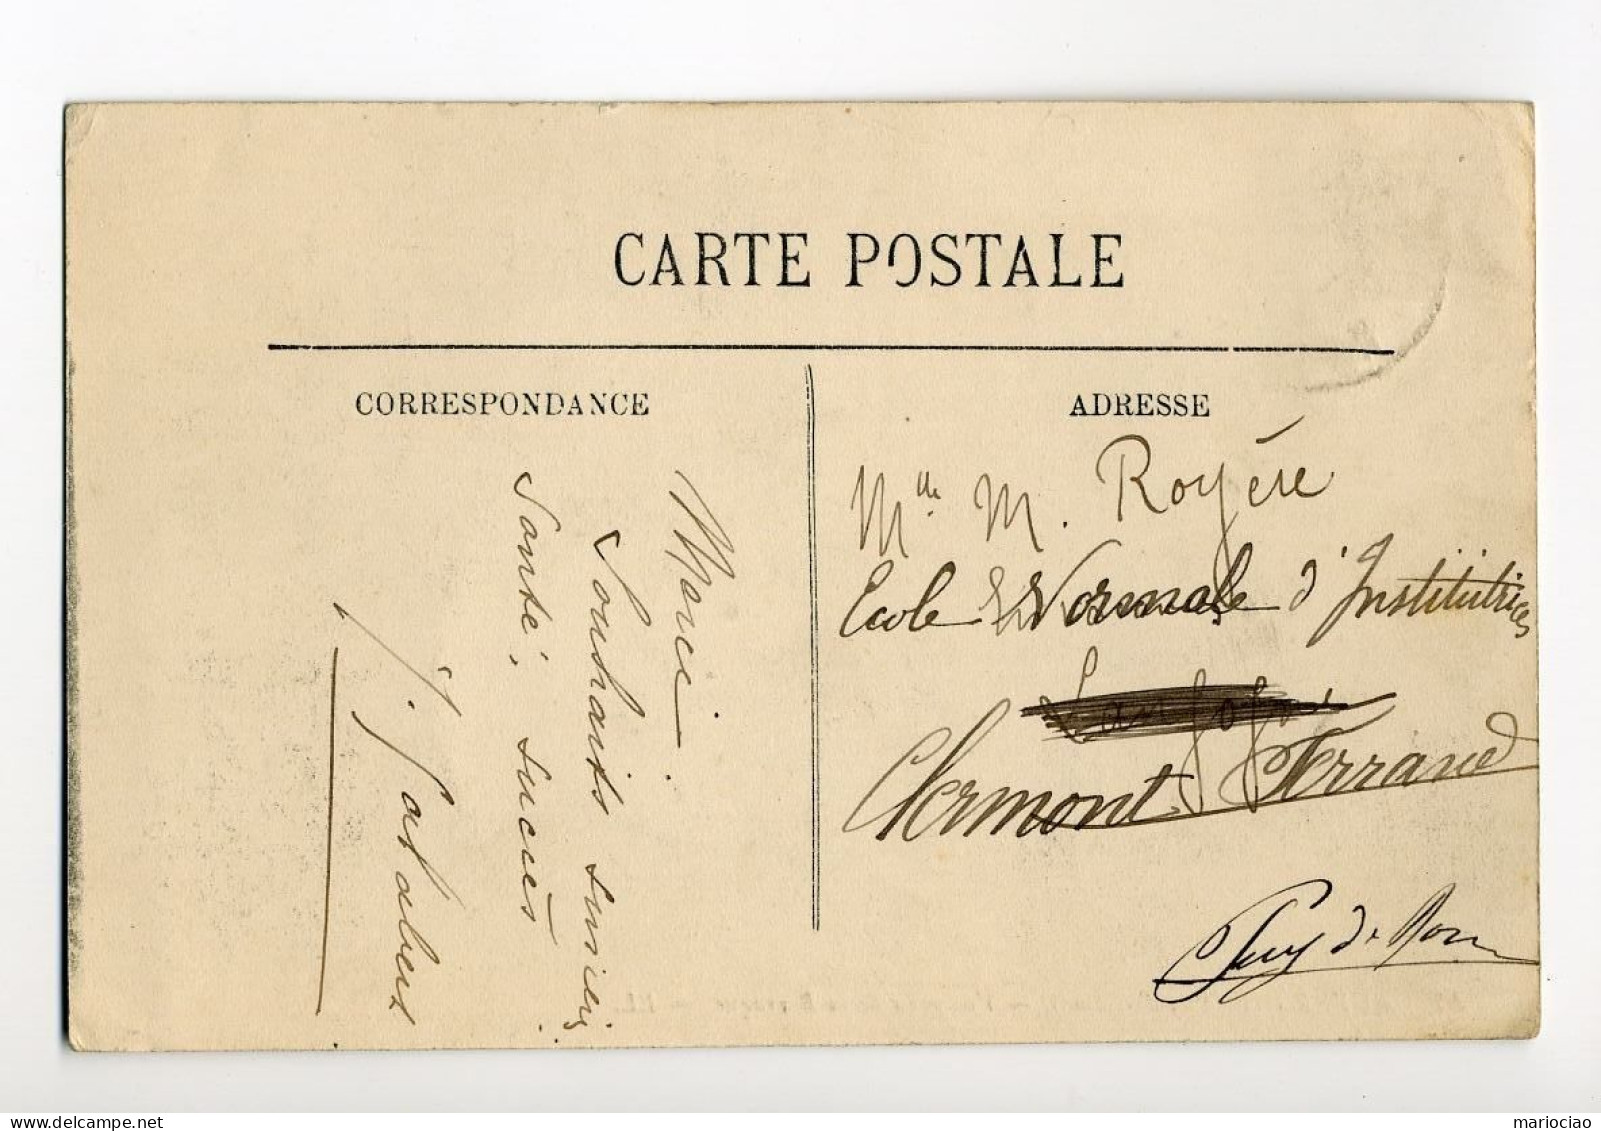 CARTE POSTALE
CORRESPONDANCE
ADRESSE
Merci.
Souhaits sincères
Santé, succès
J. Galabert
Mlle M. Royère
Ecole Normale d'Institutrices
Clermont Ferrand
Puy de Dome
mariociao